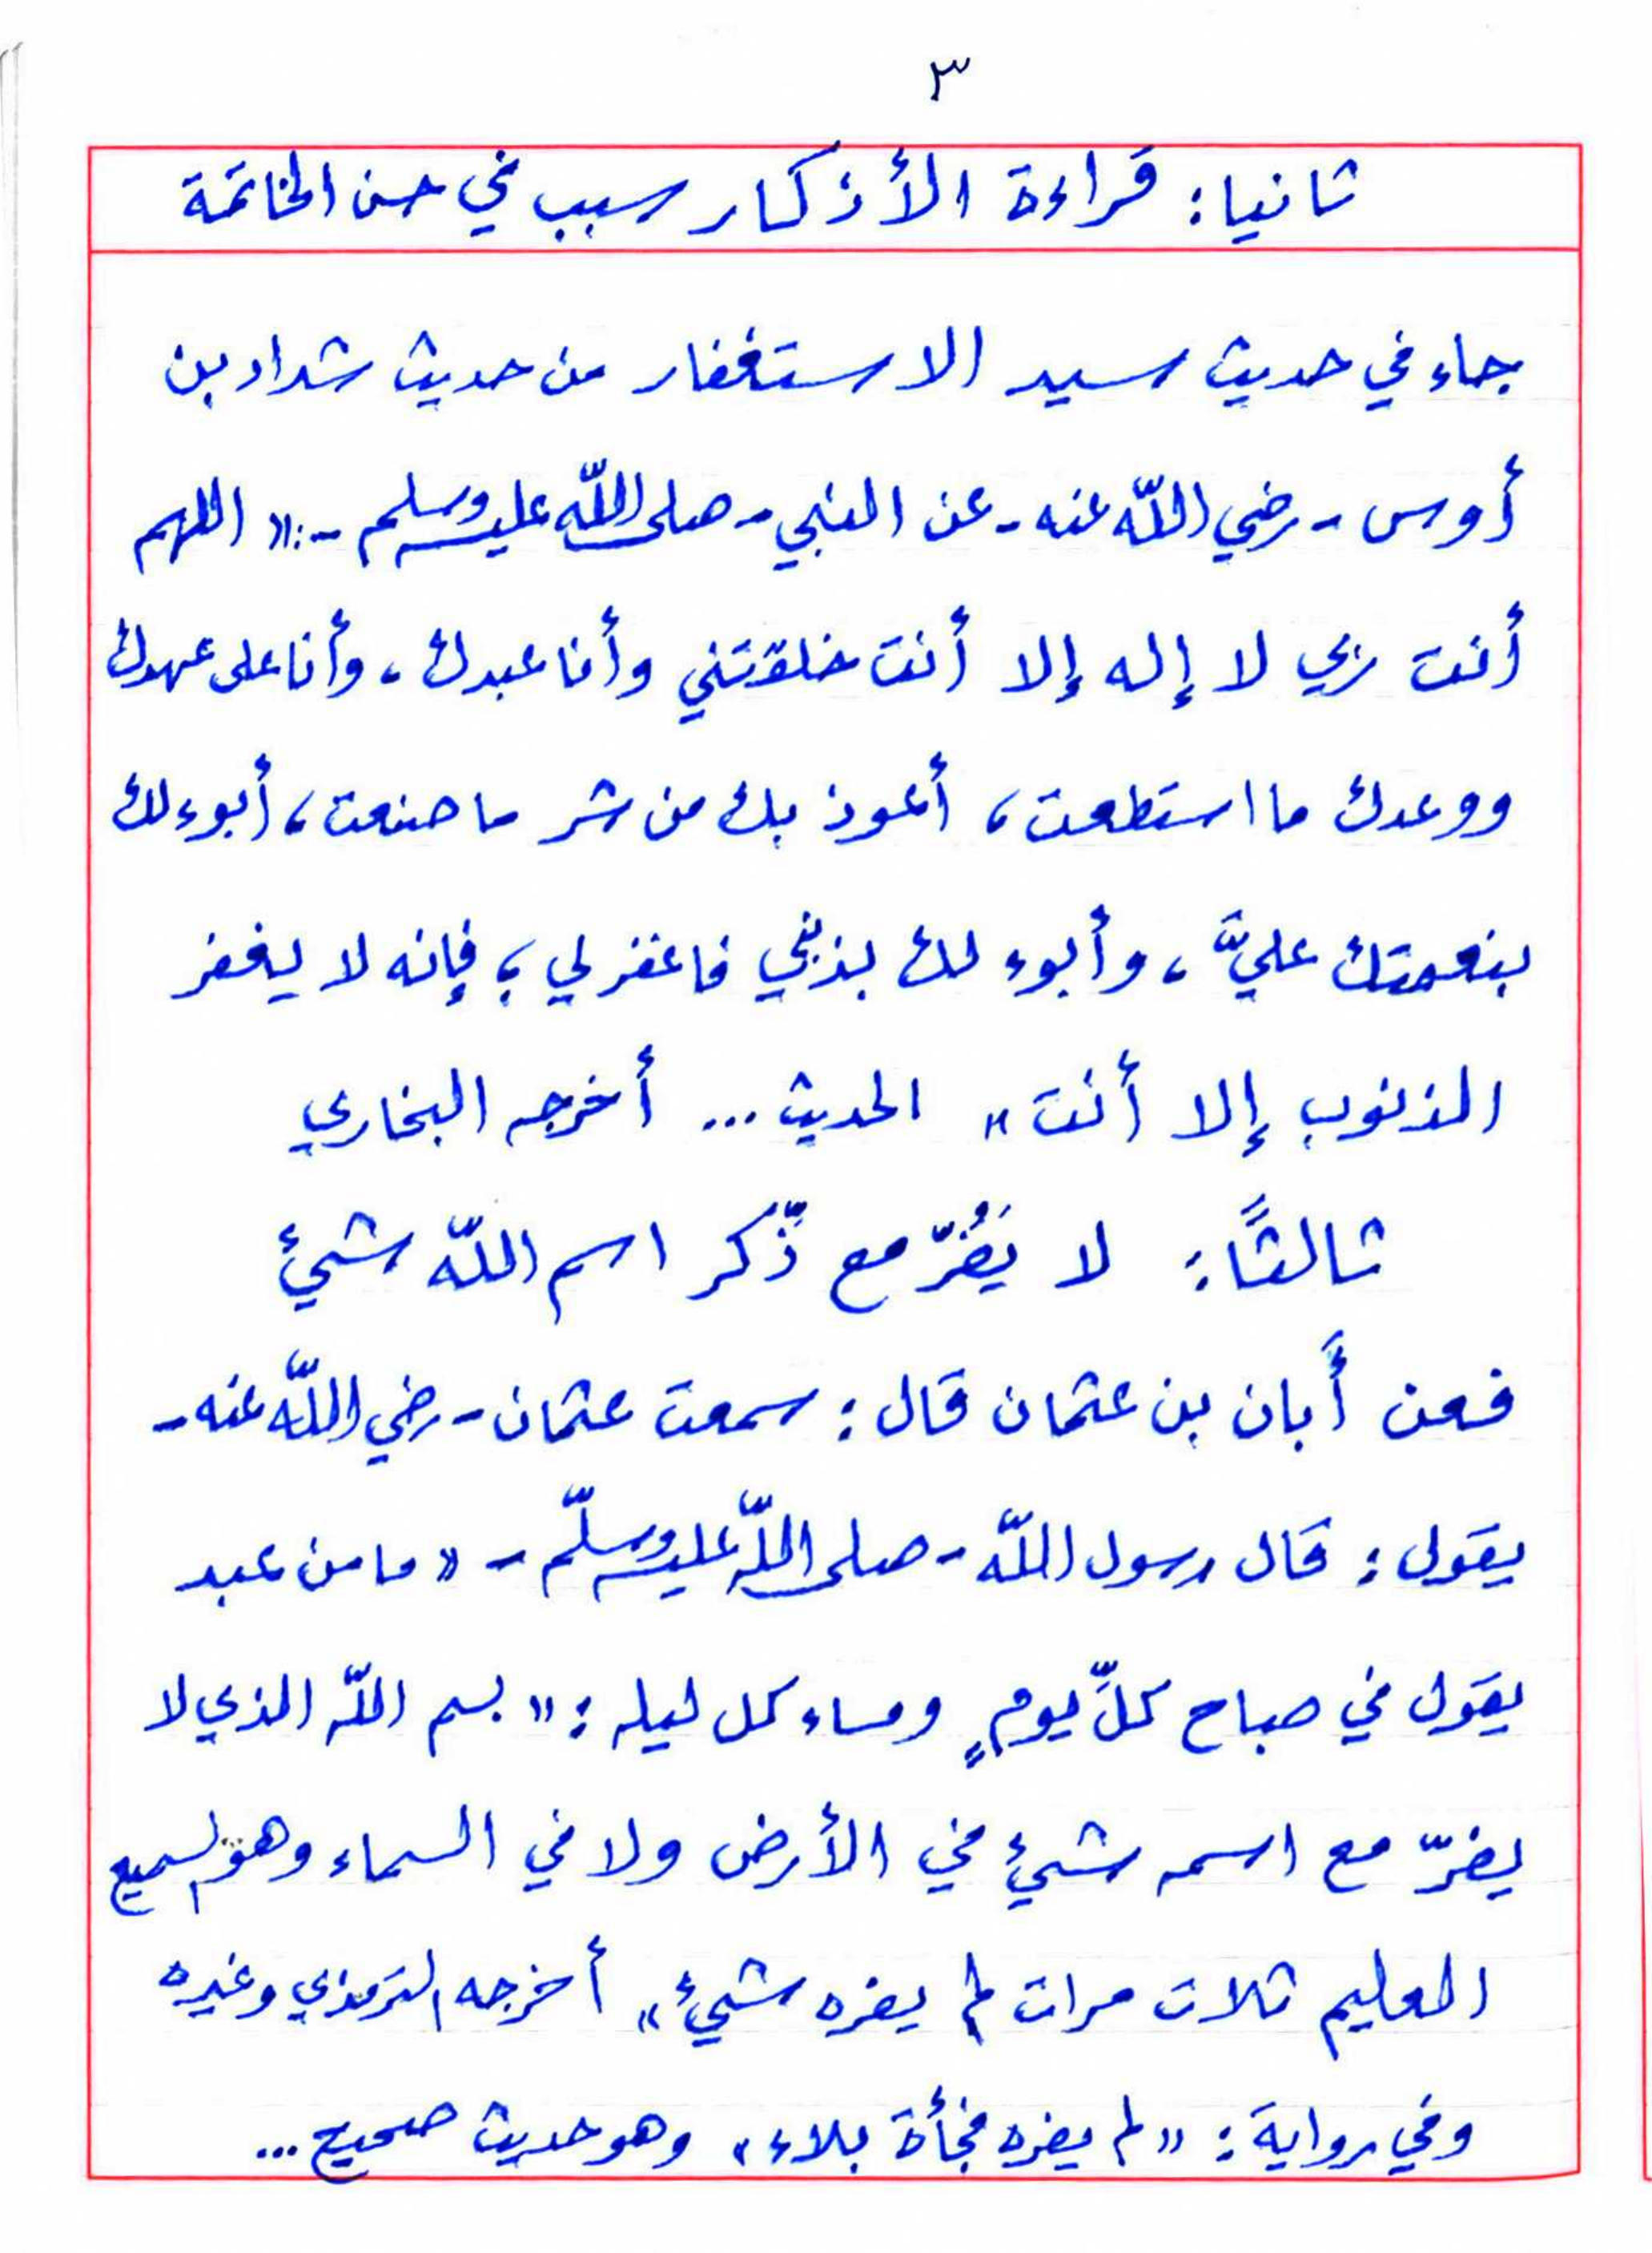 ٣
ثانيا: قراءة الأذكار سبب في حسن الخاتمة
جاء في حديث سيد الاستغفار من حديث شداد بن
أوس - رضي اللّه عنه - عن النبي - صلى اللّه عليه وسلم -: « اللهم
أنت ربي لا إله إلا أنت خلقتني وأنا عبدك، وأنا على عهدك
ووعدك ما استطعت، أعوذ بك من شر ما صنعت، أبوء لك
بنعمتك عليَّ، وأبوء لك بذنبي فاغفر لي؛ فإنه لا يغفر
الذنوب إلا أنت» الحديث ... أخرجه البخاري
ثالثًا: لا يَضُرّ مع ذِّكر اسم اللّه شيئ
فعن أَبان بن عثمان قال: سمعت عثمان - رضي اللّه عنه -
يقول: قال رسول اللّه - صلى اللّه عليه وسلّم - « ما من عبد
يقول في صباح كلّ يومٍ ومساء كل ليله: « بسم اللّه الذي لا
يضرّ مع اسمه شيئ في الأرض ولا في السماء وهو السميع
العليم ثلاث مرات لم يضره شيئ» أخرجه الترمذي وغيره
وفي رواية: « لم يضره فجأة بلاء» وهو حديث صحيح ...